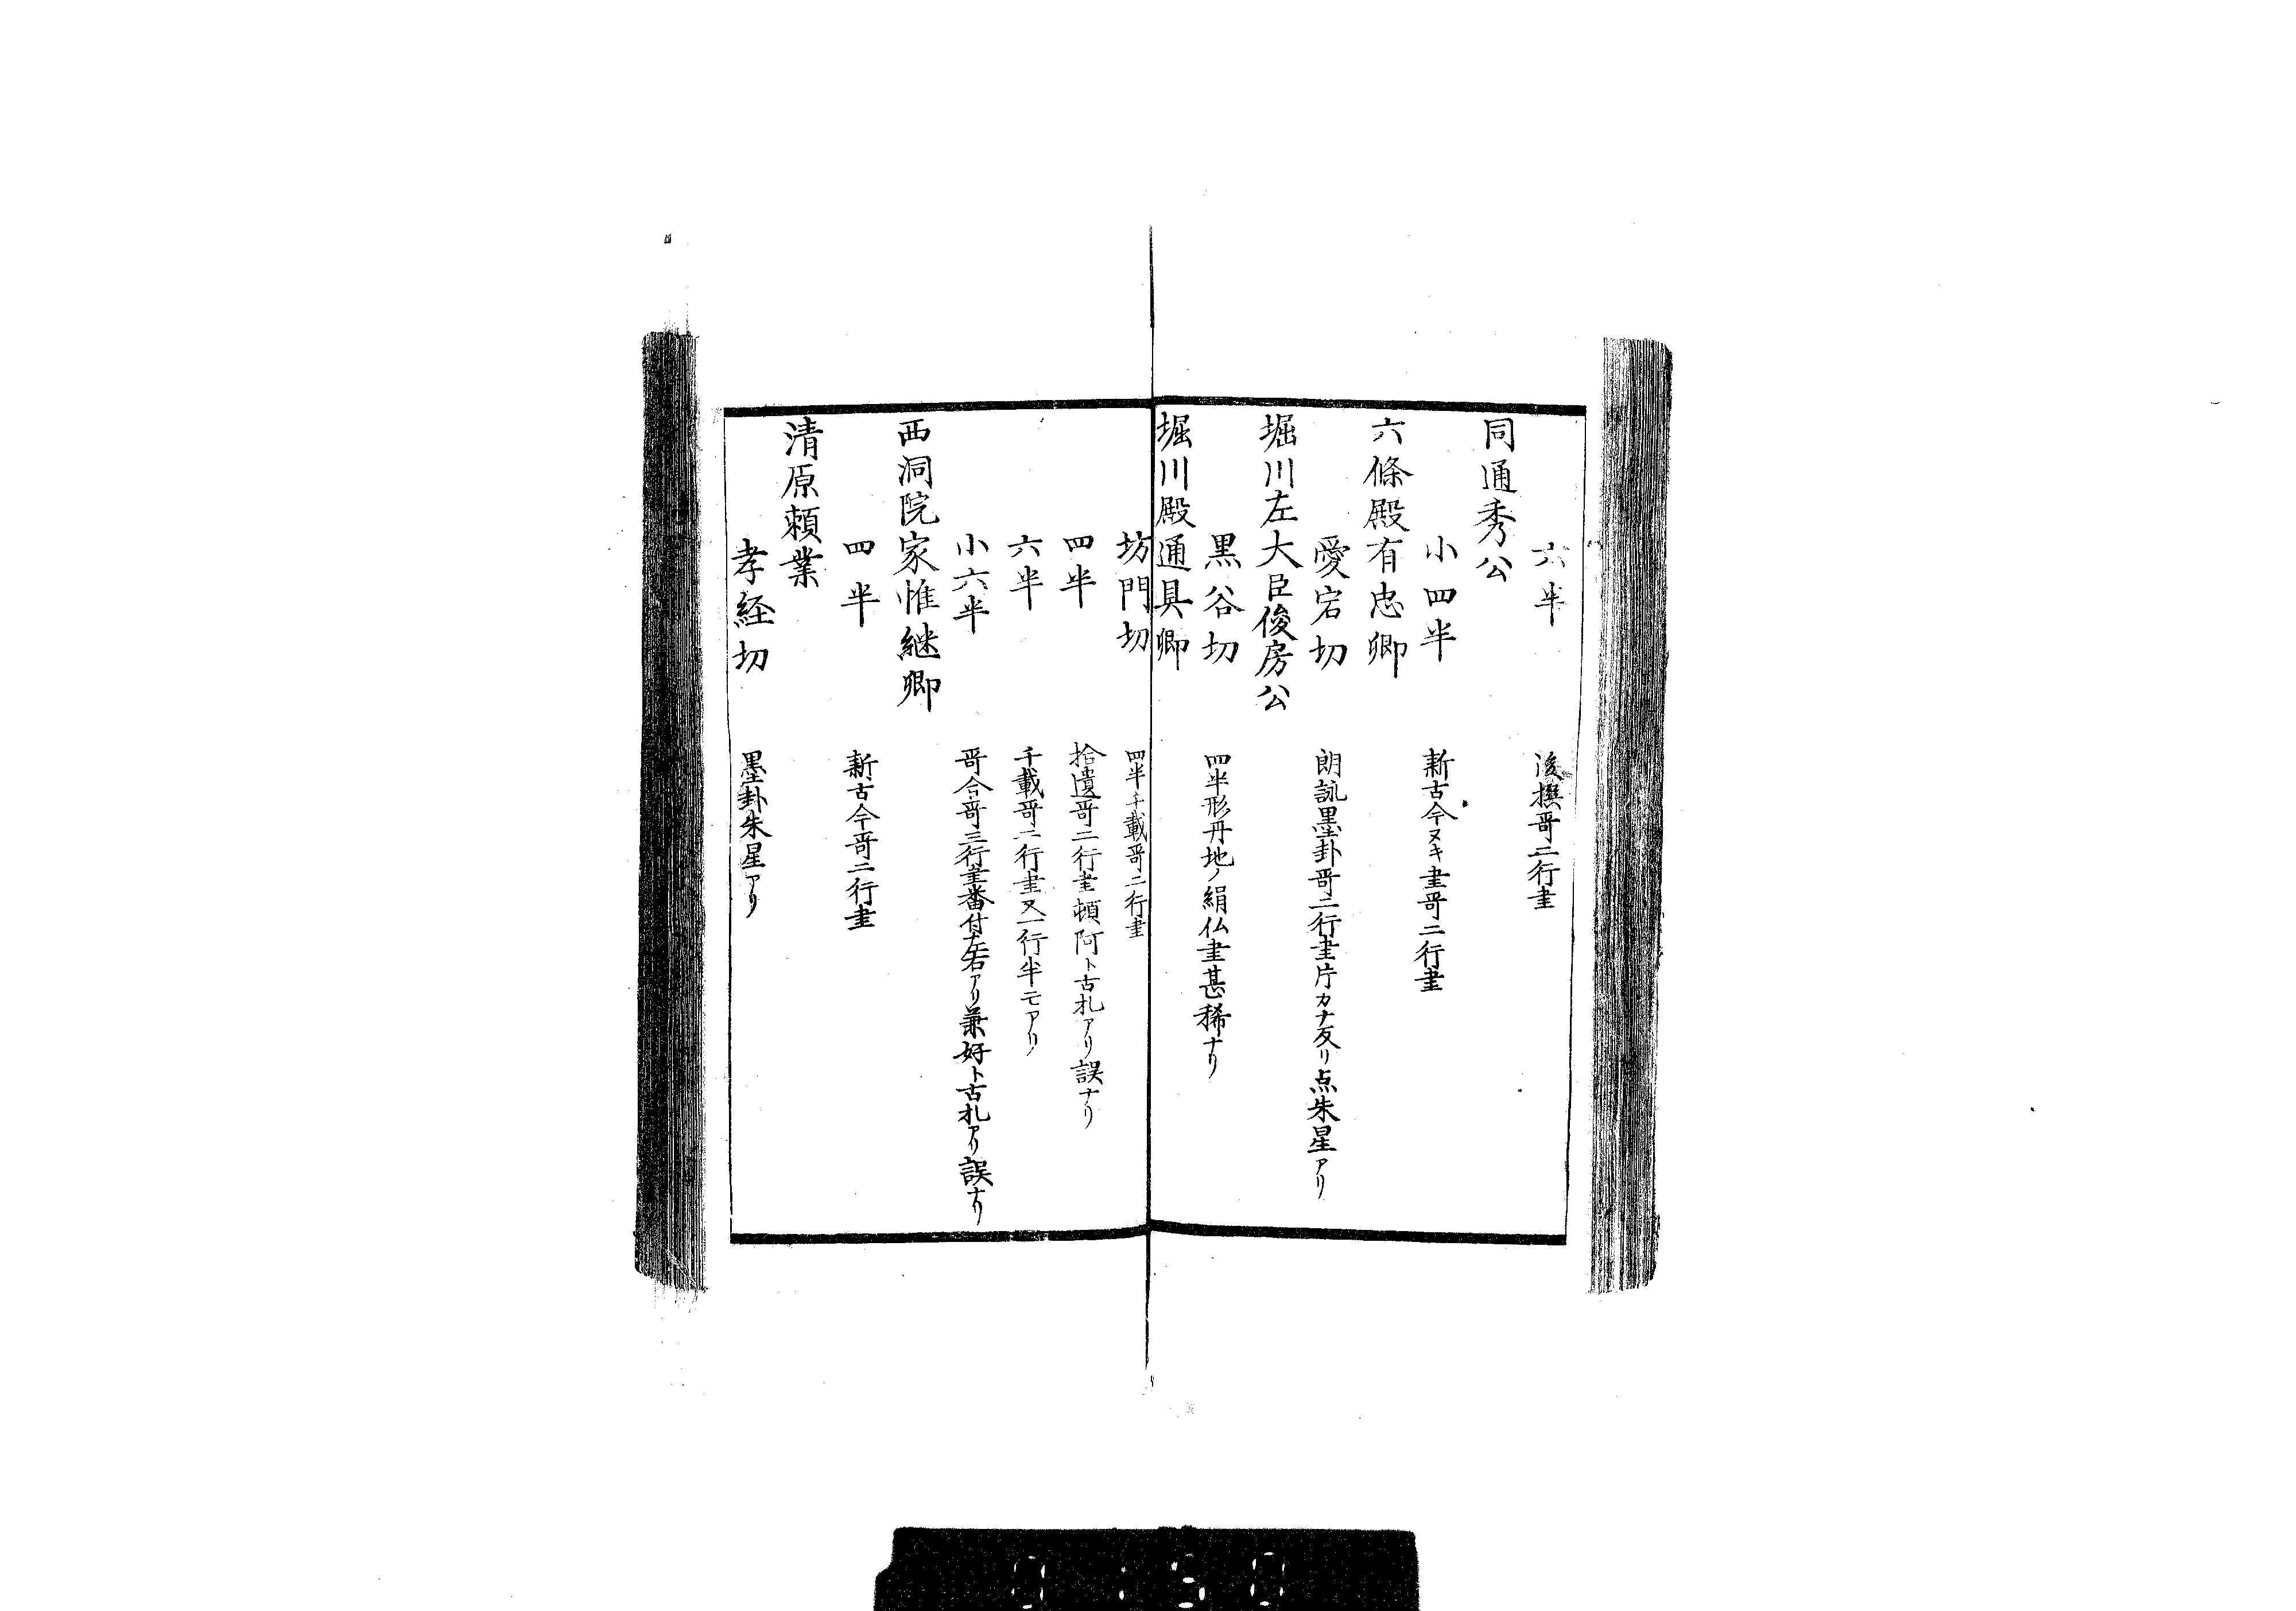 六半　後撰哥二行書
同通秀公
小四半　新古今ヌキ書哥二行書
六條殿有忠卿
愛宕切　朗詠墨卦哥二行書片カナ反リ点朱星アリ
堀川左大臣俊房公
黒谷切　四半形丹地ノ絹仏書甚稀ナリ
堀川殿通具卿
坊門切　四半千載哥二行書
四半　拾遺哥二行書頓阿ト古札アリ誤ナリ
六半　千載哥二行書又一行半モアリ
小六半　哥合哥三行書番付左右アリ兼好ト古札アリ誤ナリ
西洞院家惟継卿
四半　新古今哥二行書
清原頼業
孝経切　墨卦朱星アリ